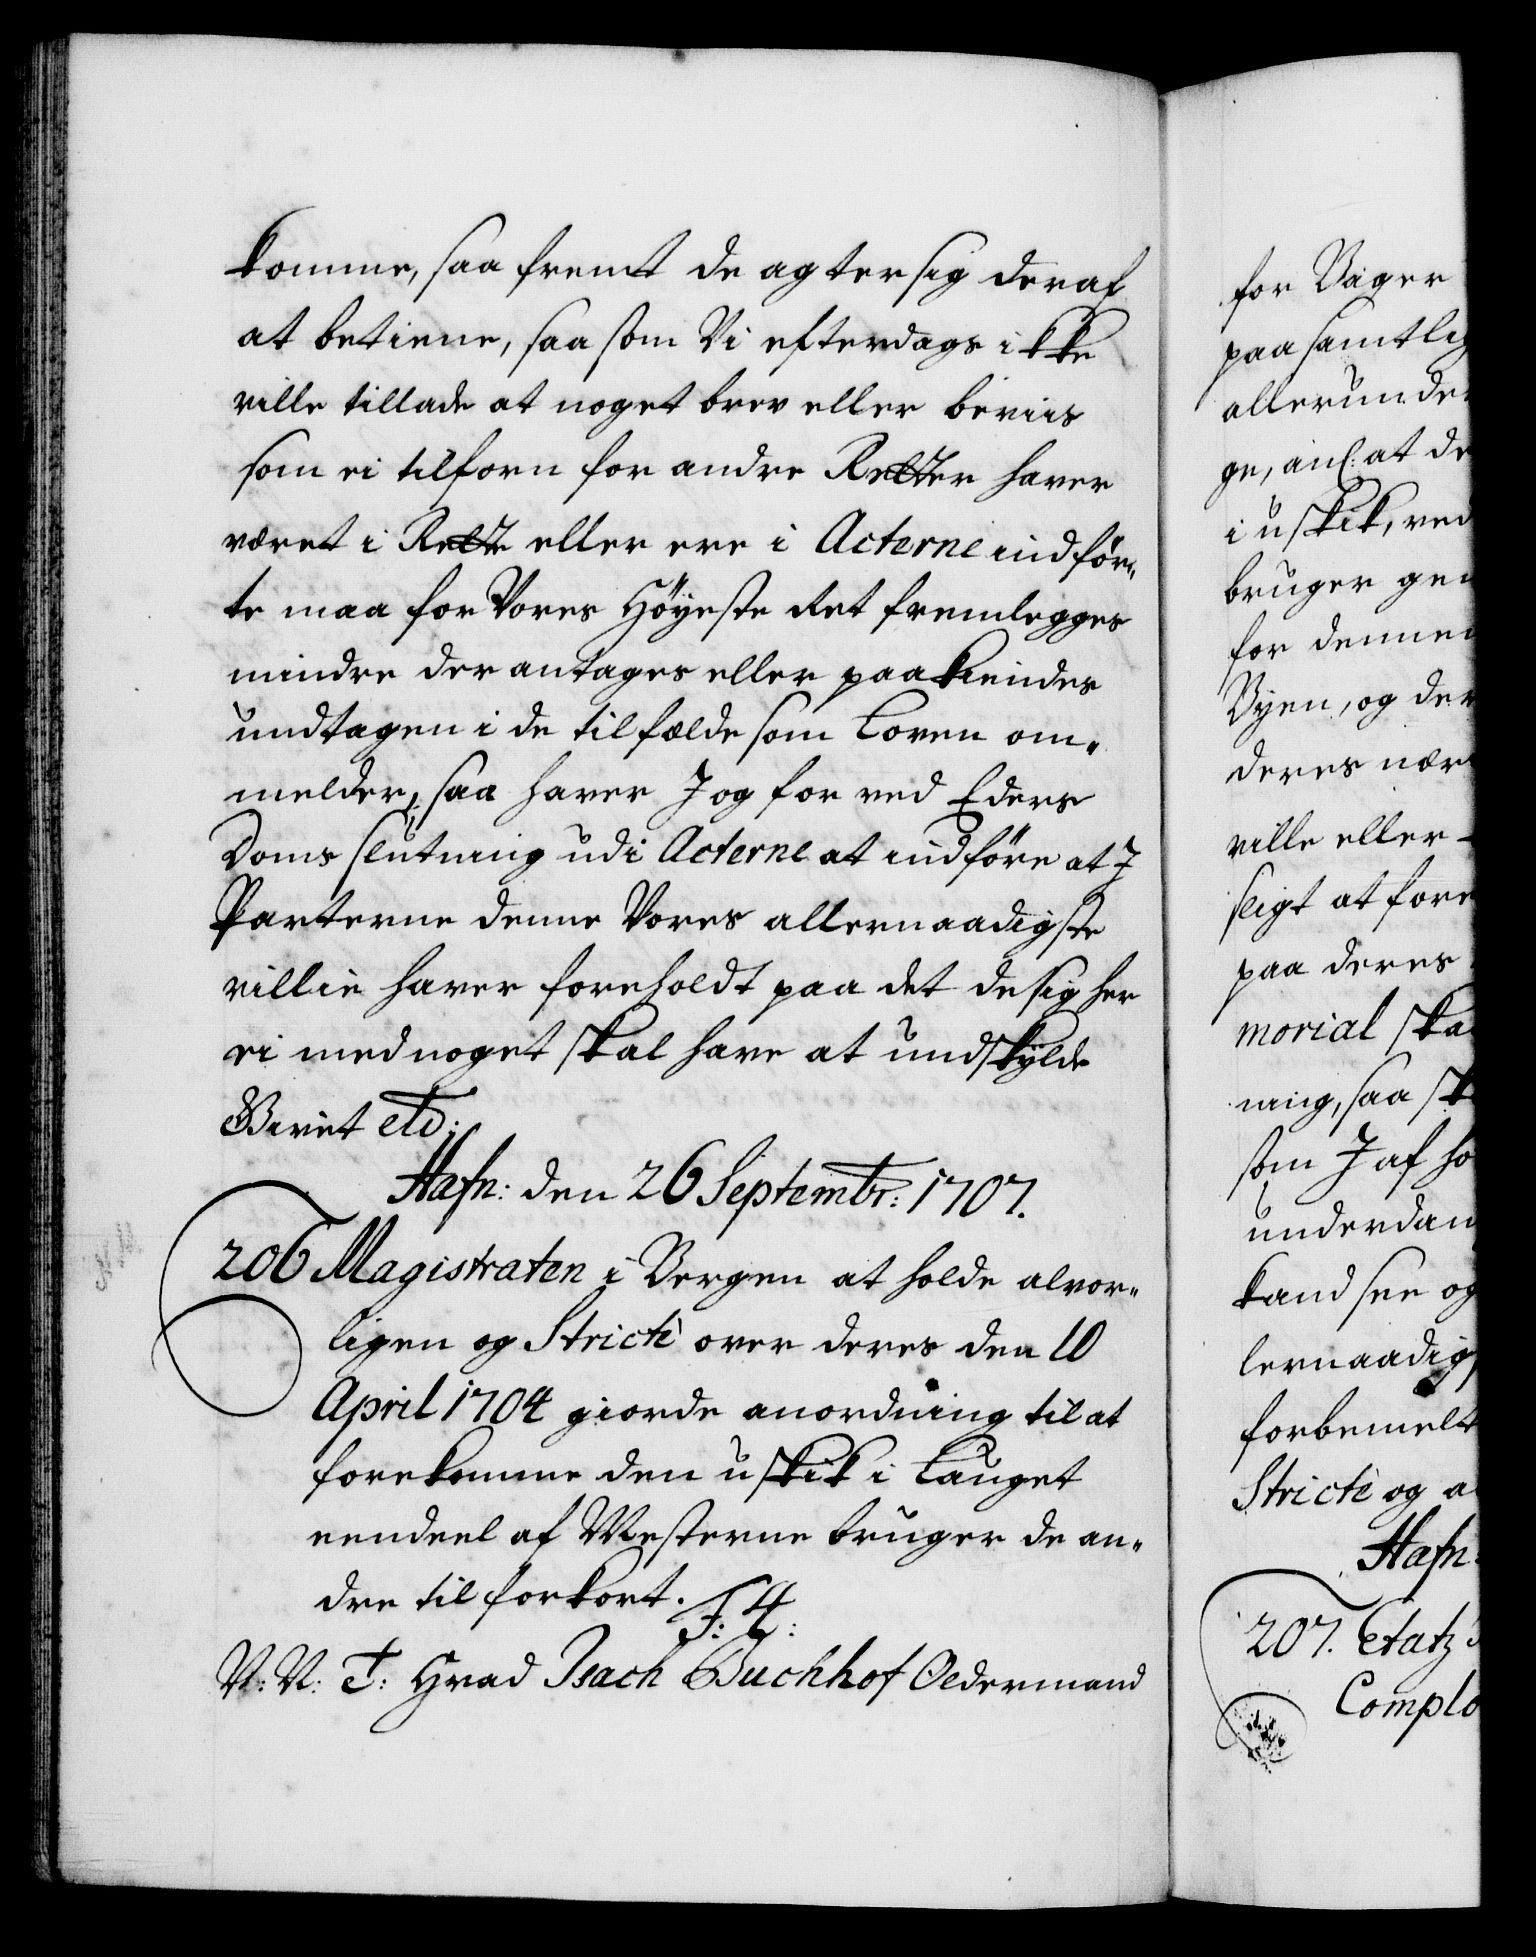 komme, saa fremt de agter sig deraf
at betiene, saa som Vi efterdags ikke
ville tillade at noget brev eller beviis
som ei tilforn for andre Retter haver
været i Rette eller ere i Acterne indför-
te maa for Vores Höyeste Ret fremlegges
mindre der antages eller paakiendes
undtagen i de tilfælde som Loven om-
melder, saa haver I og for ved Eders
Doms slutning udi Acterne at indföre at I
Parterne denne Vores allernaadigste
villie haver foreholdt paa det de sig her
ei med noget skal have at undskylde
Givet etc:
Hafn: den 26 Septembr: 1707.
206 Magistraten i Bergen at holde alvor-
ligen og Strictè over deres den 10
April 1704 giorde anordning til at
forekomme den uskik i Lauget
eendeel af Mesterne bruger de an-
dre til forkort.
F: 4:
V: V: G: Hvad Isach Buchhof Oldermand
for Bager
paa samtlig
allerunder
ge, anl: at de
i uskik, ved
bruger gen
for dennem
Byen, og der
deres nær
ville eller
sligt at fore
paa deres
morial ska
ning, saa sk
som I af ho
underdan
kand see og
lernaadigs
forbemelt
Strictè og a
Hafn:
207. Etatz
Complo